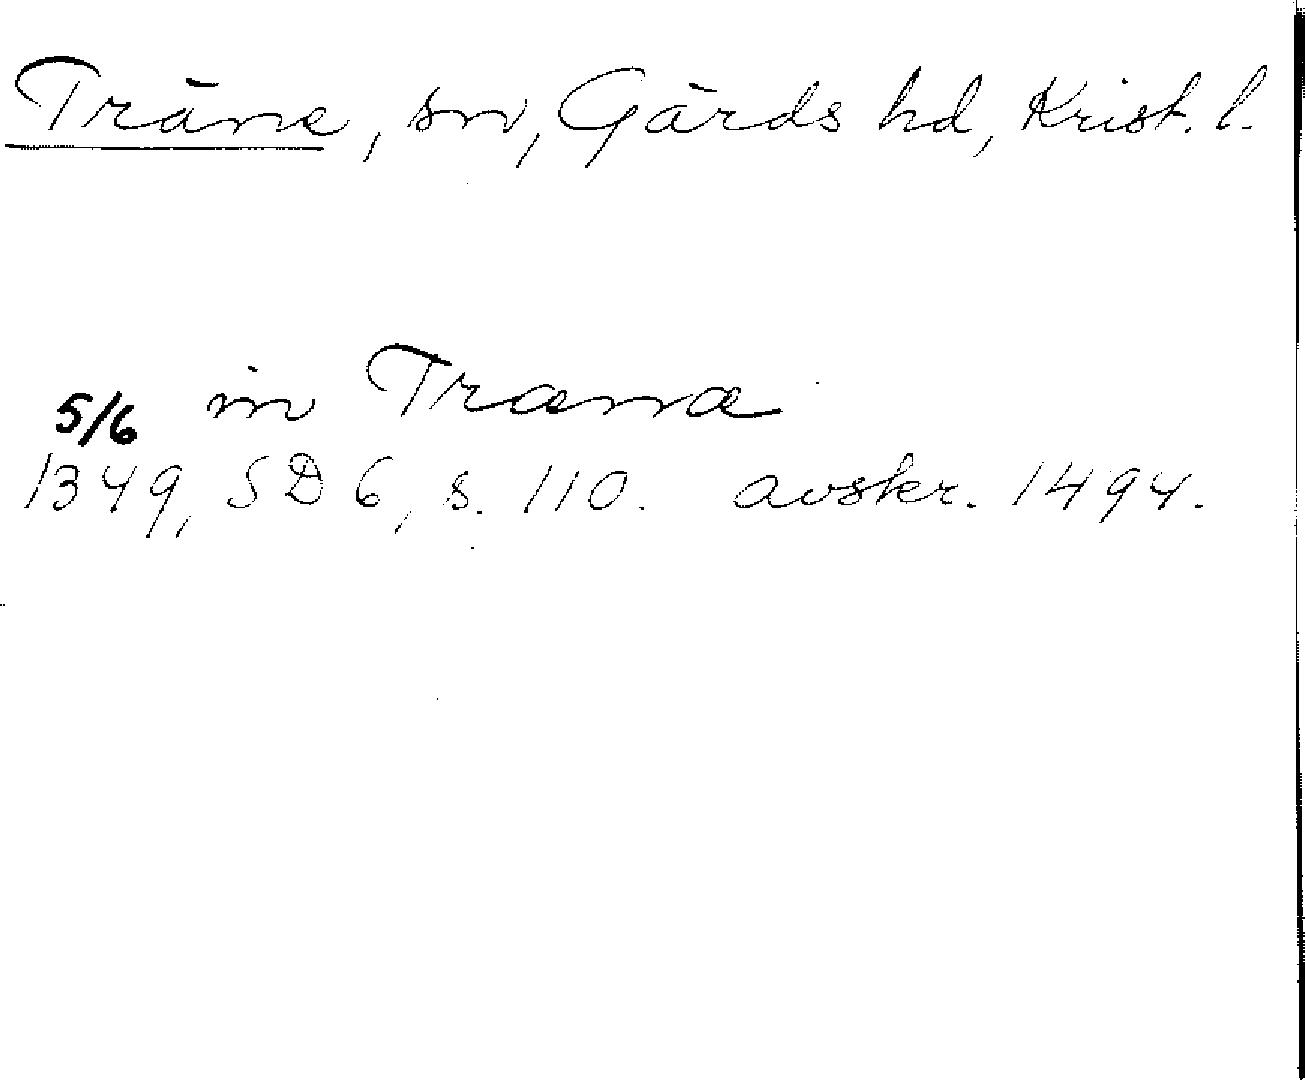 Träne, sn, Gärds hd, Krist. l.
in Træna
5/6
1349, SD 6, s. 110. avskr. 1494.